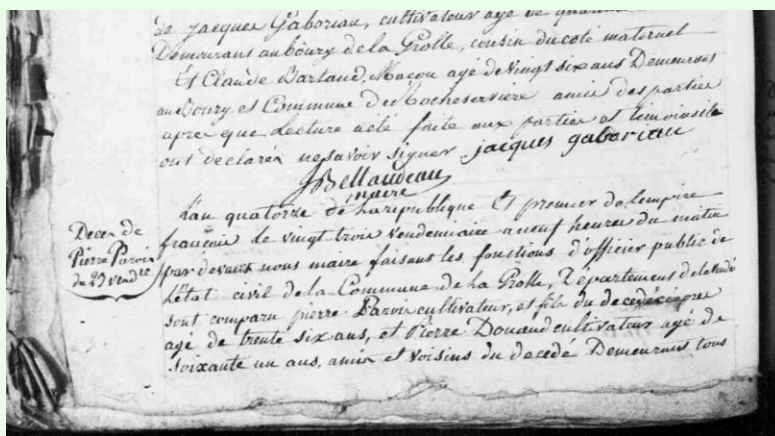 de jacques Gaboriau, cultivateur agé de
Demeurans au bourg de la Grolle, cousin du coté maternel
Et Claude Bartaud, Macon agé de vingt six ans Demeurans
au Bourg et Commune de Rocheserviere amie des partie
apre que Lecture a été faite aux partie et temoins ils
ont declarér ne savoir signer jacques gaboriau
JBellaudeau
maire
Deces de
Pierre Paroir
du 23 vendre
L'an quatorze de la republique Et premier de l'empire
francois le vingt trois vendemiaire a neuf heures du matin
par devant nous maire faisant les fonctions d'officier public de
l'Etat civil de la Commune de la Grolle, Département de la vendé
sont comparu pierre Paroir cultivateur, et fils du decedé
agé de trente six ans, et Pierre Douaud cultivateur agé de
soixante un ans, amis et voisins du decedé Demeurans tous